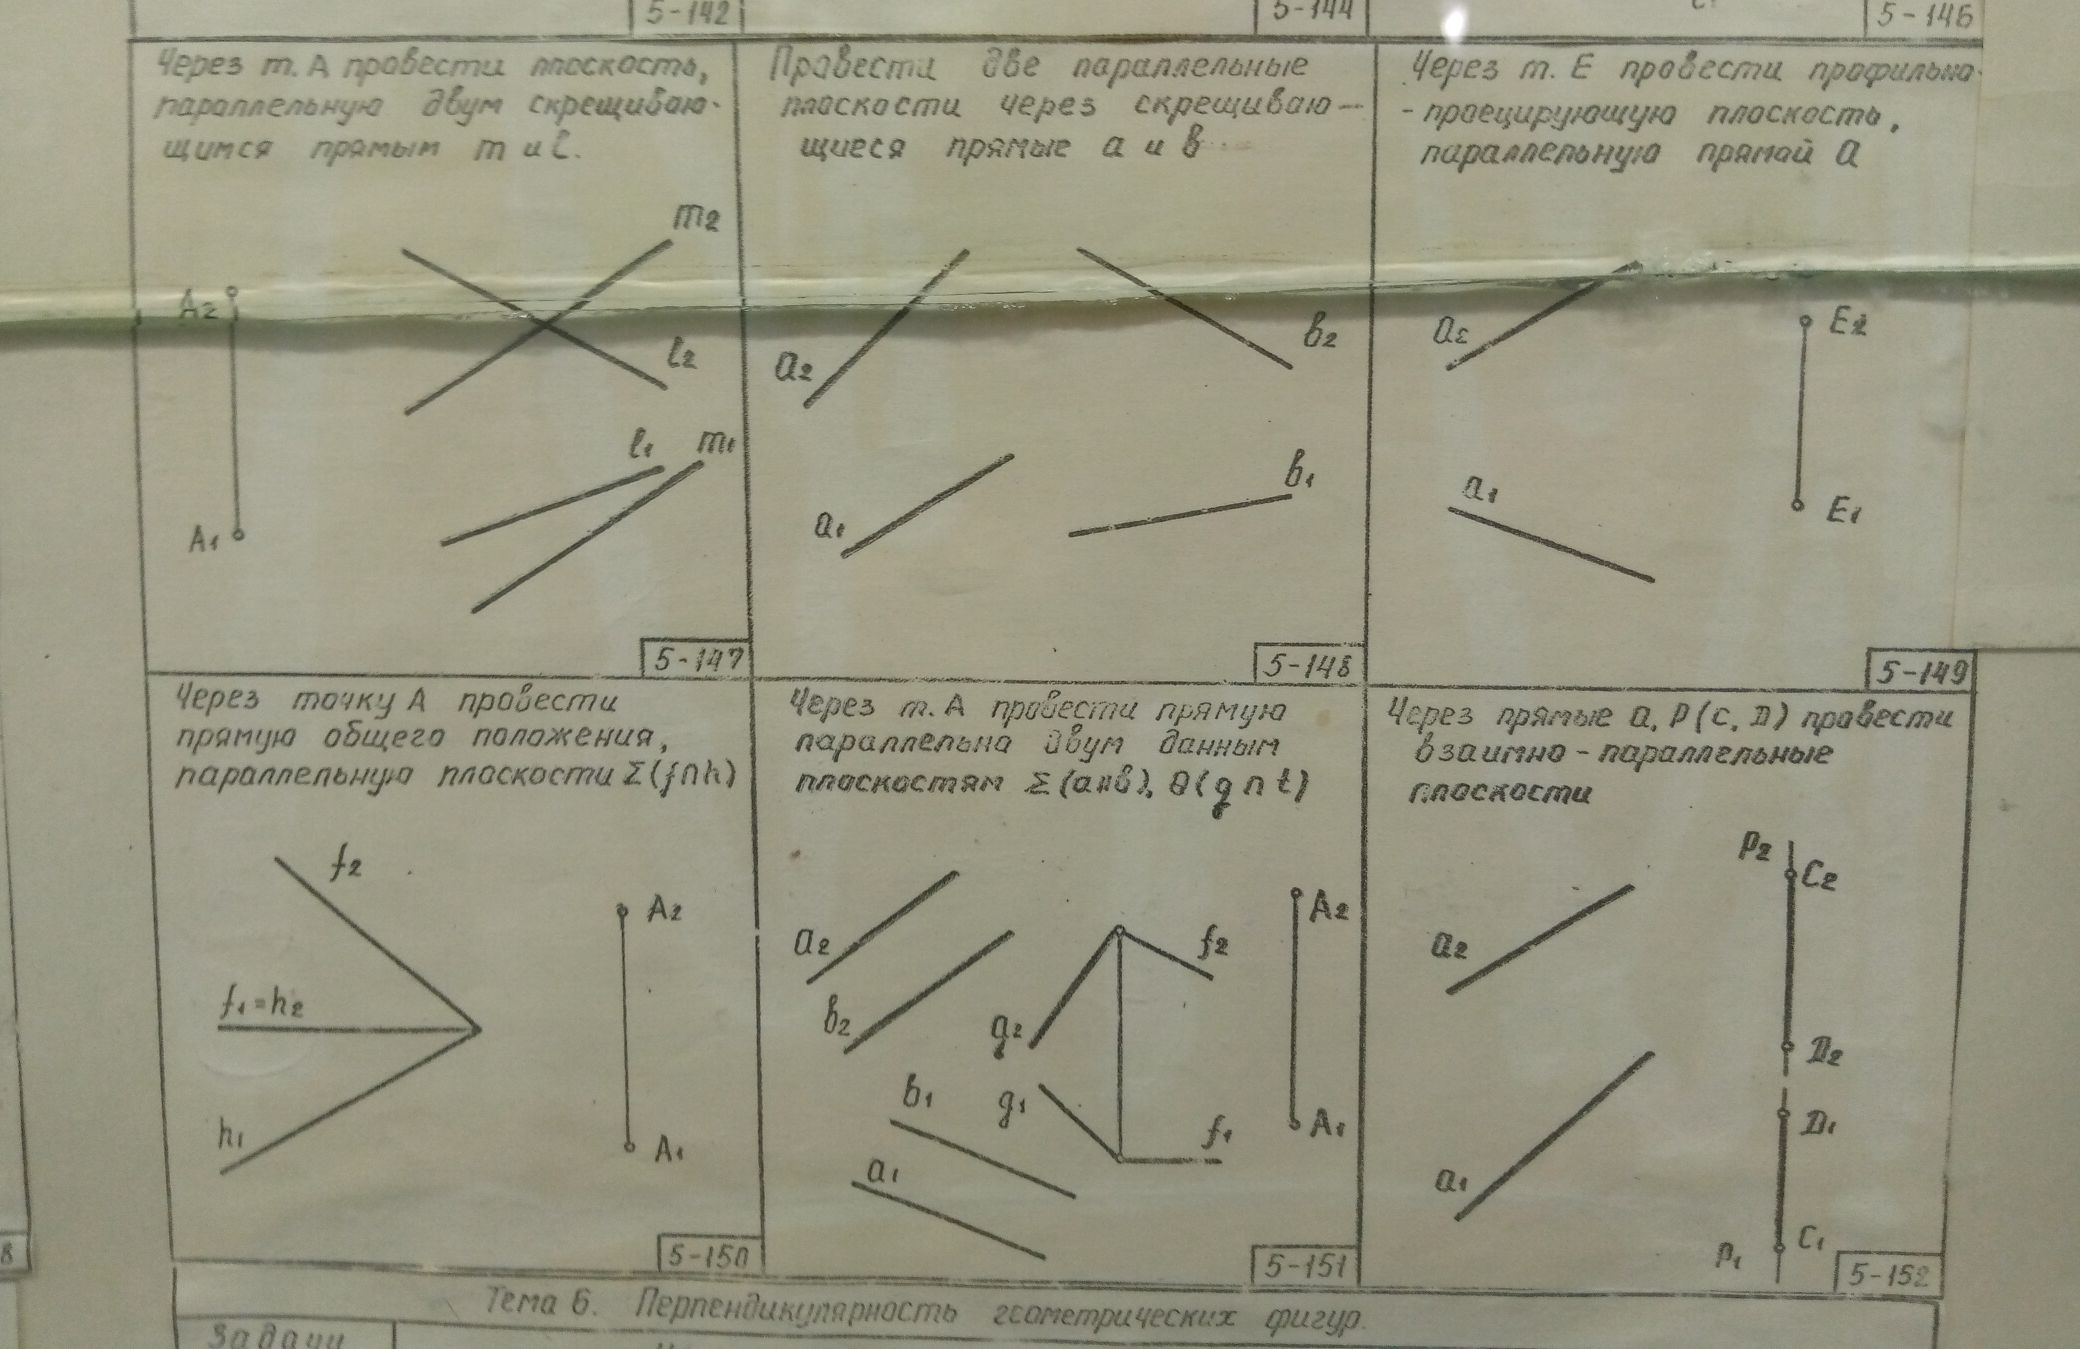 5-142
5-144
5-146
Через т. А провести плоскость,
параллельную двум скрещиваю-
щимся прямым m и l.
A2
m2
l2
l1
m1
A1
5-147
Провести две параллельные
плоскости через скрещиваю-
щиеся прямые a и b
a2
b2
a1
b1
5-148
Через т. Е провести профильно-
-проецирующую плоскость,
параллельную прямой a
a2
E2
a1
E1
5-149
Через точку А провести
прямую общего положения,
параллельную плоскости Σ(f∩h)
f2
A2
f1=h2
h1
A1
5-150
Через т. А провести прямую
параллельно двум данным
плоскостям Σ(a∥b), Θ(g∩t)
a2
b2
g2
f2
A2
b1
g1
f1
A1
a1
5-151
Через прямые a, p(C, D) провести
взаимно-параллельные
плоскости
p2
C2
a2
D2
D1
a1
p1
C1
5-152
Тема 6. Перпендикулярность геометрических фигур.
Задачи